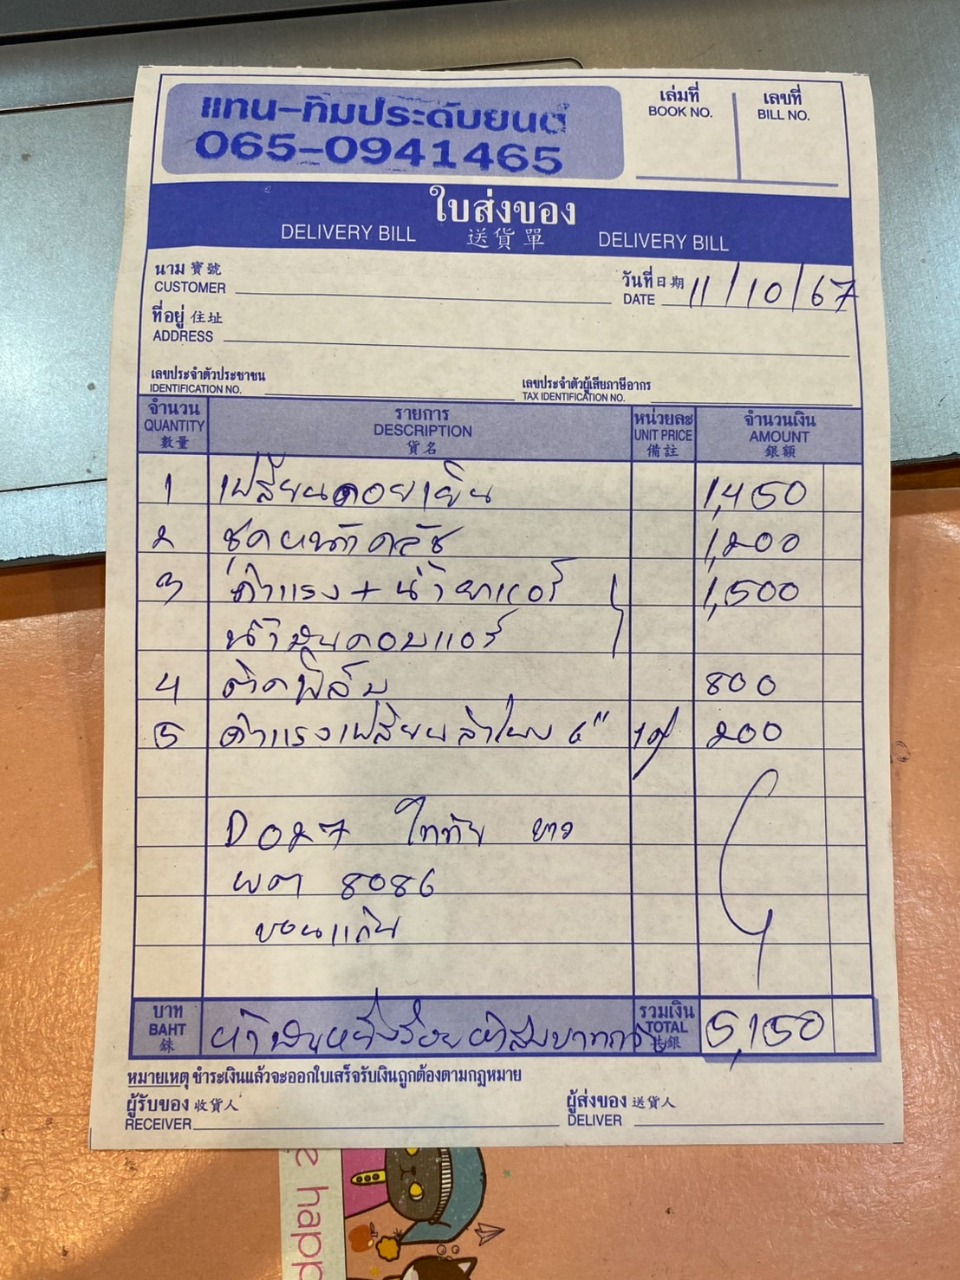 แทน-ทิมประดับยนต์
065-0941465
เล่มที่
BOOK NO.
เลขที่
BILL NO.
ใบส่งของ
DELIVERY BILL 送貨單 DELIVERY BILL
นาม 寳號
CUSTOMER
วันที่ 日期
DATE 11/10/67
ที่อยู่ 住址
ADDRESS
เลขประจำตัวประชาชน
IDENTIFICATION NO.
เลขประจำตัวผู้เสียภาษีอากร
TAX IDENTIFICATION NO.
จำนวน รายการ หน่วยละ จำนวนเงิน
QUANTITY DESCRIPTION UNIT PRICE AMOUNT
數量 貨名 備註 銀額
1 เปลี่ยนคอยเย็น 1,450
2 ชุดหน้าคลัช 1,200
3 ค่าแรง + น้ำยาแอร์ 1,500
น้ำมันคอมแอร์
4 ติดฟิล์ม 800
5 ค่าแรงเปลี่ยนลำโพง 6" 200
D027
8086
ขอนแก่น
บาท
BAHT
銖
ห้าพันหนึ่งร้อยห้าสิบบาท
รวมเงิน
TOTAL
共銀
5,150
หมายเหตุ ชำระเงินแล้วจะออกใบเสร็จรับเงินถูกต้องตามกฎหมาย
ผู้รับของ 收貨人
RECEIVER
ผู้ส่งของ 送貨人
DELIVER
happ